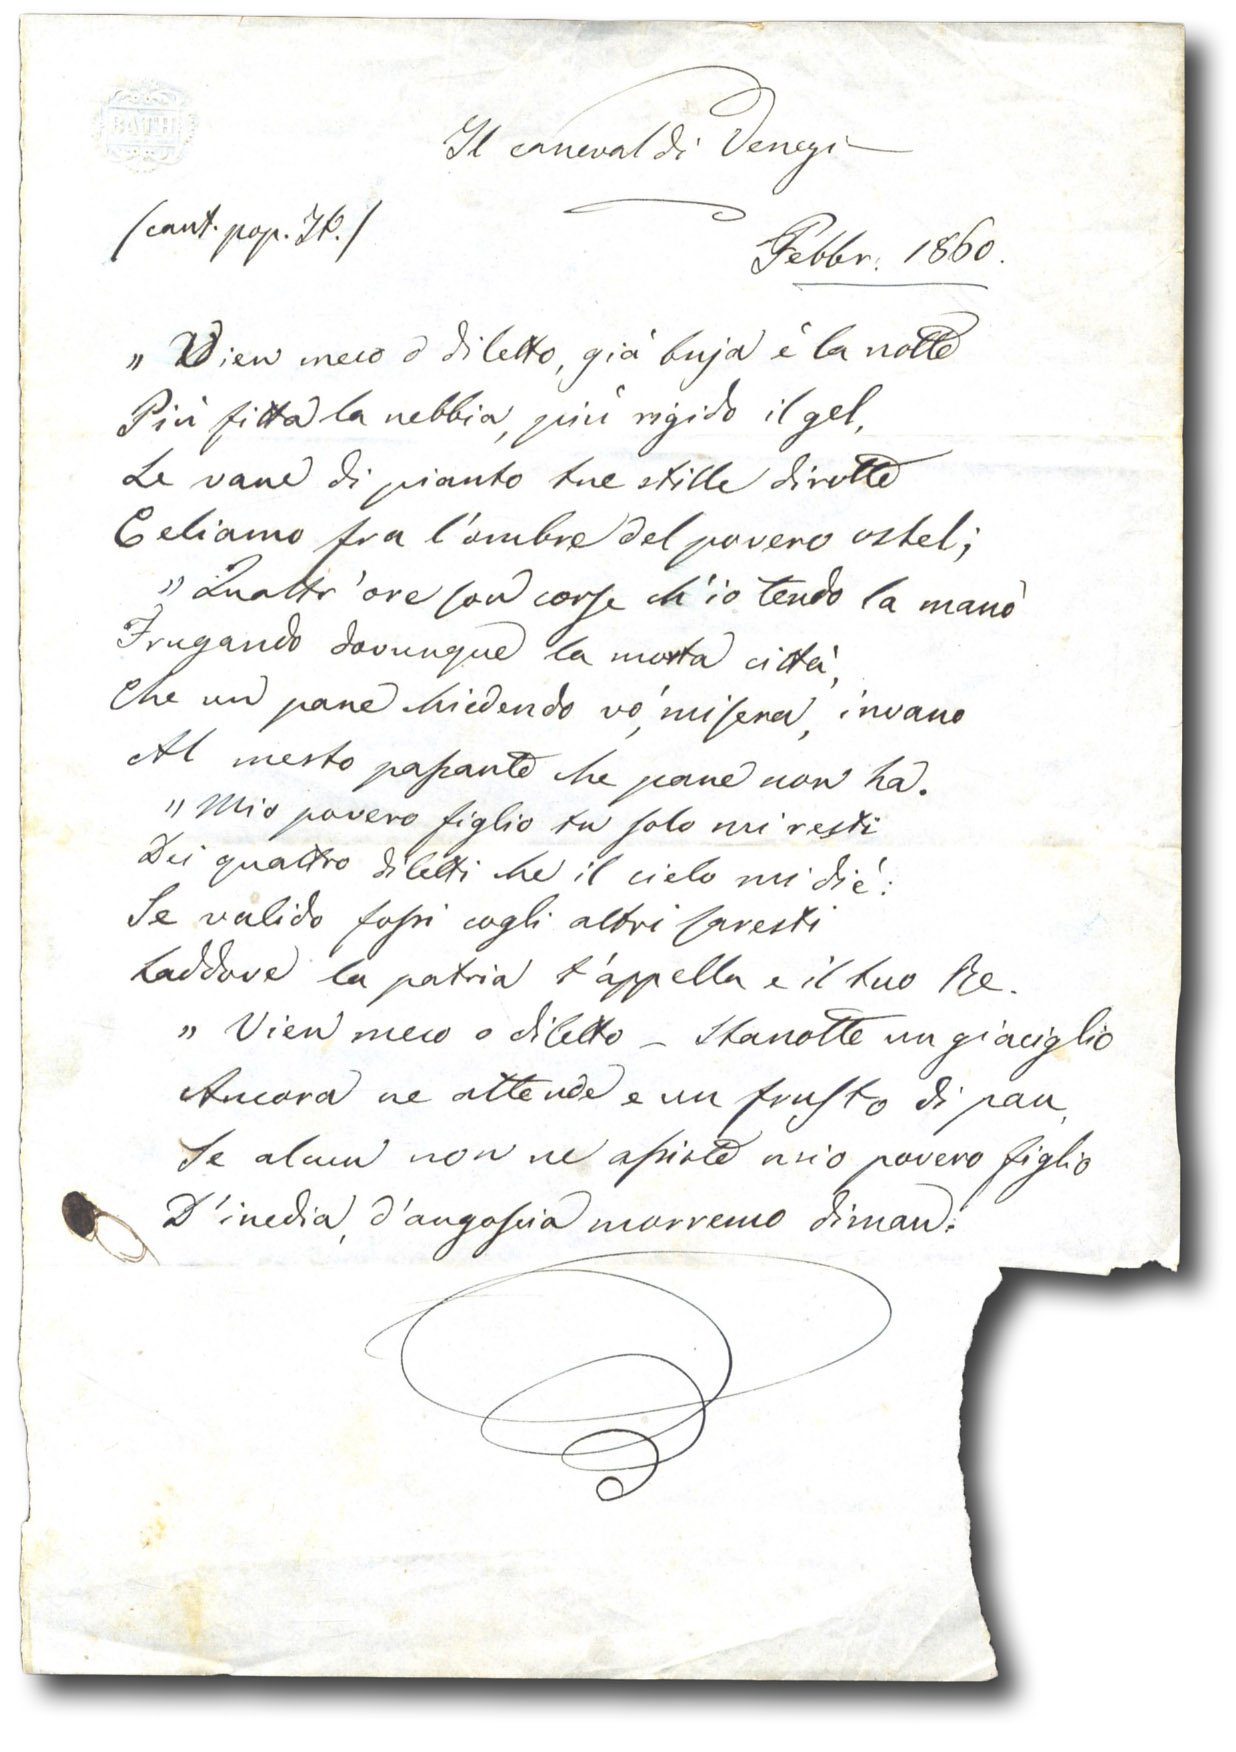 BATH
Il carneval di Venezi
(cant. pop. It.)
Febbr: 1860.
" Vien meco o diletto, già buja è la notte
Più fitta la nebbia, più rigido il gel,
Le vane di pianto tue stille dirotte
Celiamo fra l'ombre del povero ostel;
" Quattr'ore son corse ch'io tendo la mano
Frugando dovunque la morta città,
Che un pane chiedendo vò, misera, invano
Al mesto passante che pane non ha.
" Mio povero figlio tu solo mi resti
Dei quattro diletti che il cielo mi diè:
Se valido fossi cogli altri saresti
Laddove la patria t'appella e il tuo Re.
" Vien meco o diletto – stanotte un giaciglio
Ancora ne attende e un frusto di pan,
Se alcun non ne assiste mio povero figlio
D'inedia, d'angoscia morremo diman: